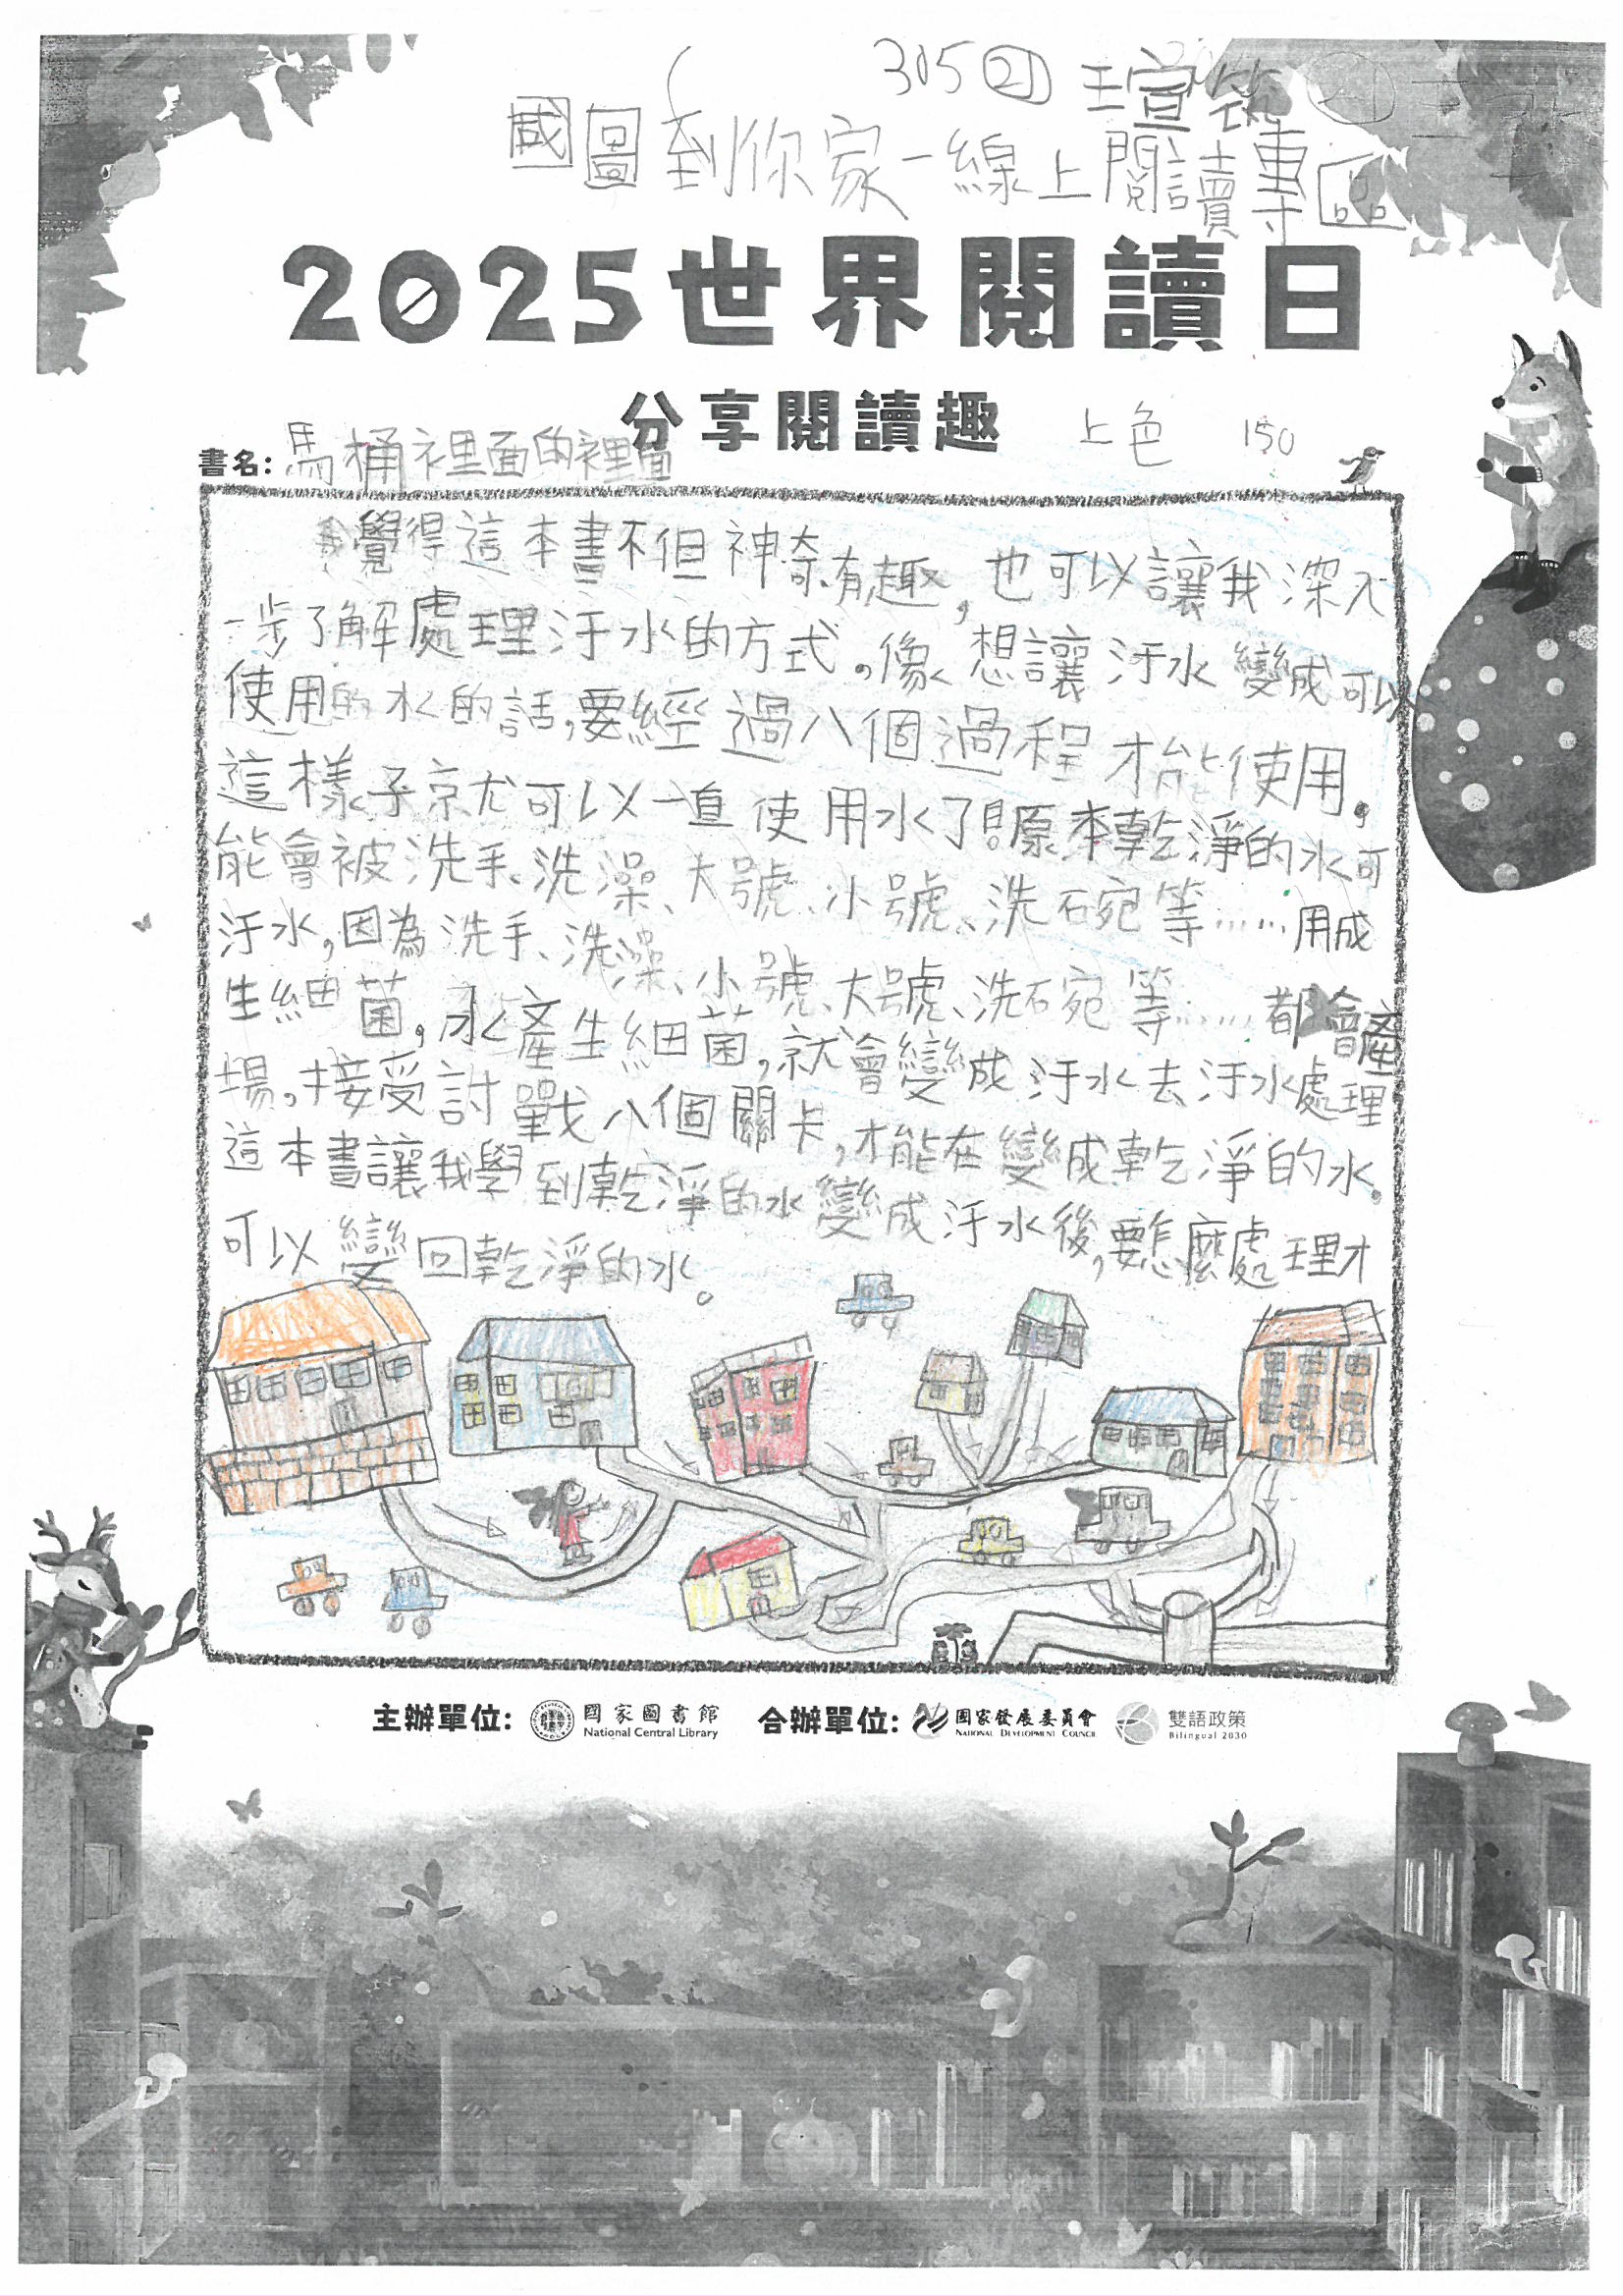 305 21 王宣筑
國圖到你家一線上閱讀專區
2025世界閱讀日
分享閱讀趣
上色 150
書名：馬桶裡面的裡面
我覺得這本書不但神奇有趣，也可以讓我深入
一步了解處理汙水的方式。像想讓汙水變成可以
使用的水的話，要經過八個過程才能使用。
這樣子就可以一直使用水了！原本乾淨的水可
能會被洗手、洗澡、大號、小號、洗碗等……用成
汙水，因為洗手、洗澡、小號、大號、洗碗等……都會產
生細菌，水產生細菌，就會變成汙水去汙水處理
場。接受討戰八個關卡，才能在變成乾淨的水。
這本書讓我學到乾淨的水變成汙水後，要怎麼處理才
可以變回乾淨的水。
主辦單位： 國家圖書館 National Central Library 合辦單位： 國家發展委員會 NATIONAL DEVELOPMENT COUNCIL 雙語政策 Bilingual 2030